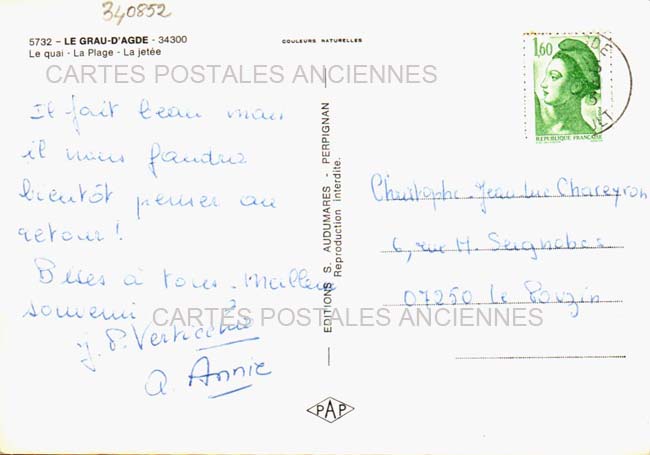 340852
5732 - LE GRAU-D'AGDE - 34300
Le quai - La Plage - La jetée
COULEURS NATURELLES
CARTES POSTALES ANCIENNES
Il fait beau mais
il nous faudra
bientôt penser au
retour !
Bises à tous - Meilleur
souvenir
J. P. Verticchio
A. Annie
EDITIONS S. AUDUMARES - PERPIGNAN
Reproduction interdite.
1,60
REPUBLIQUE FRANÇAISE
Christophe - Jean Luc Chareyron
6, rue H. Seignobos
07250 Le Pouzin
CARTES POSTALES ANCIENNES
PAP